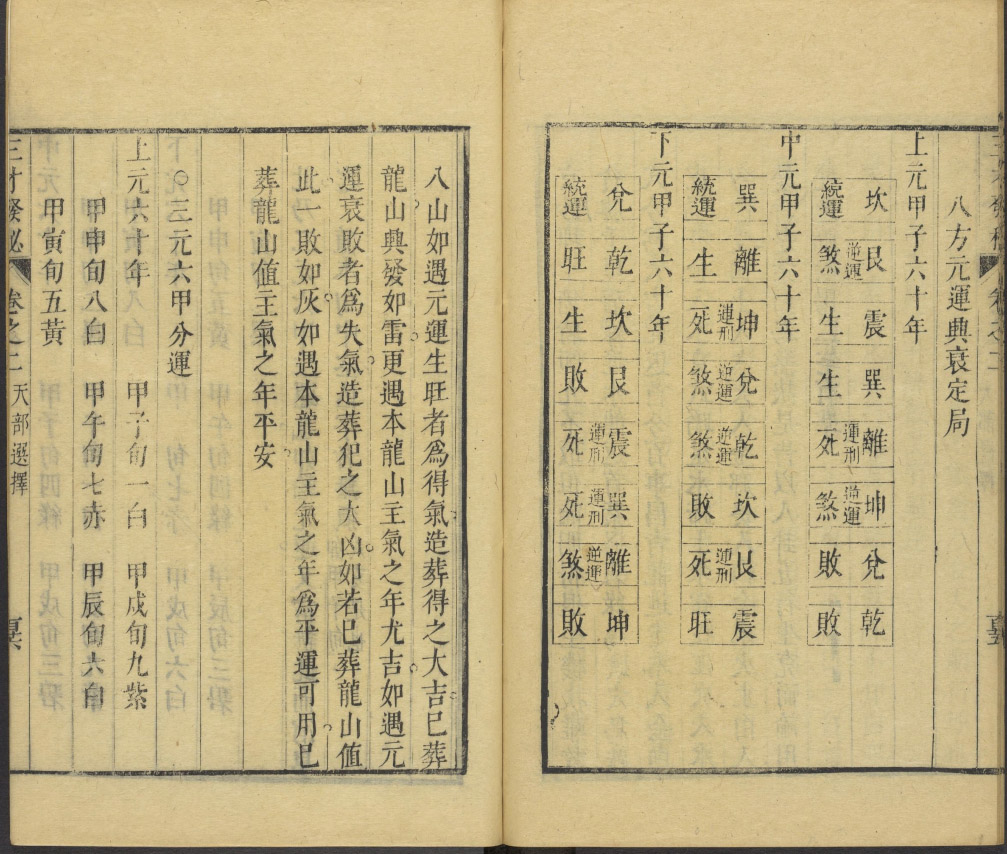 八方元運興衰定局
上元甲子六十年
坎 艮 震 巽 離 坤 兌 乾
統運 煞逆運 生 生 死運刑 煞逆運 敗 敗
中元甲子六十年
巽 離 坤 兌 乾 坎 艮 震
統運 生 死運刑 煞逆運 煞逆運 敗 死運刑 旺
下元甲子六十年
兌 乾 坎 艮 震 巽 離 坤
統運 旺 生 敗 死運刑 死運刑 煞逆運 敗
八山如遇元運生旺者爲得氣造葬得之大吉已葬
龍山興發如雷更遇本龍山王氣之年尤吉如遇元
運衰敗者爲失氣造葬犯之大凶如若已葬龍山值
此一敗如灰如遇本龍山王氣之年爲平運可用已
葬龍山值王氣之年平安
○三元六甲分運
上元六十年 甲子旬一白 甲戌旬九紫
甲申旬八白 甲午旬七赤 甲辰旬六白
甲寅旬五黃
三才發秘 卷之二 天部選擇